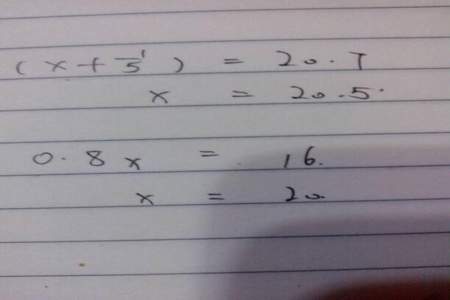 (x + 1/5) = 20.7
x = 20.5
0.8x = 16.
x = 20